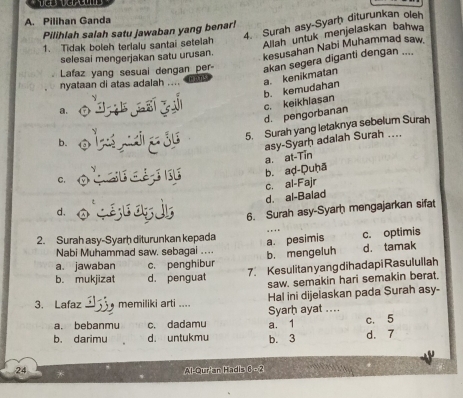 A. Pilihan Ganda
Pilihlah salah satu jawaban yang benar!
1. Tidak boleh terlalu santai setelah
selesai mengerjakan satu urusan.
Lafaz yang sesuai dengan per-
nyataan di atas adalah ....
a.
b.
c. فَإِذَا فَرَغْتَ فَانْصَبْ
d. وَإِلَىٰ رَبِّكَ فَارْغَبْ
2. Surah asy-Syarḥ diturunkan kepada
Nabi Muhammad saw. sebagai ....
a. jawaban c. penghibur
b. mukjizat d. penguat
3. Lafaz وِزْرَكَ memiliki arti ....
a. bebanmu c. dadamu
b. darimu d. untukmu
4. Surah asy-Syarḥ diturunkan oleh
Allah untuk menjelaskan bahwa
kesusahan Nabi Muhammad saw.
akan segera diganti dengan ....
a. kenikmatan
b. kemudahan
c. keikhlasan
d. pengorbanan
5. Surah yang letaknya sebelum Surah
asy-Syarḥ adalah Surah ....
a. at-Tīn
b. aḍ-Ḍuḥā
c. al-Fajr
d. al-Balad
6. Surah asy-Syarḥ mengajarkan sifat
....
a. pesimis c. optimis
b. mengeluh d. tamak
7. Kesulitan yang dihadapi Rasulullah
saw. semakin hari semakin berat.
Hal ini dijelaskan pada Surah asy-
Syarḥ ayat ....
a. 1 c. 5
b. 3 d. 7
24 Al-Qur'an Hadis 6 - 2